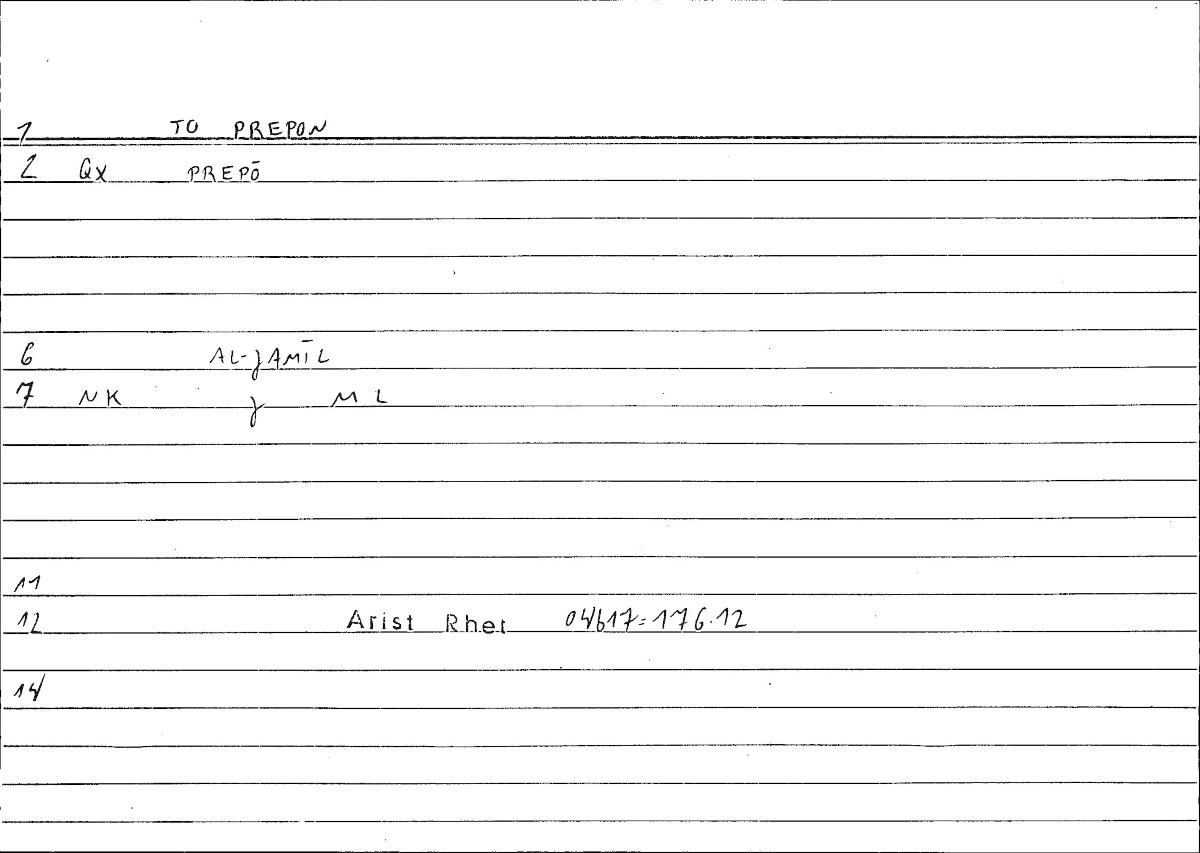 1 TO PREPON
2 QX PREPŌ
6 AL-JAMĪL
7 NK J M L
11
12 Arist Rhet 04b17=176.12
14